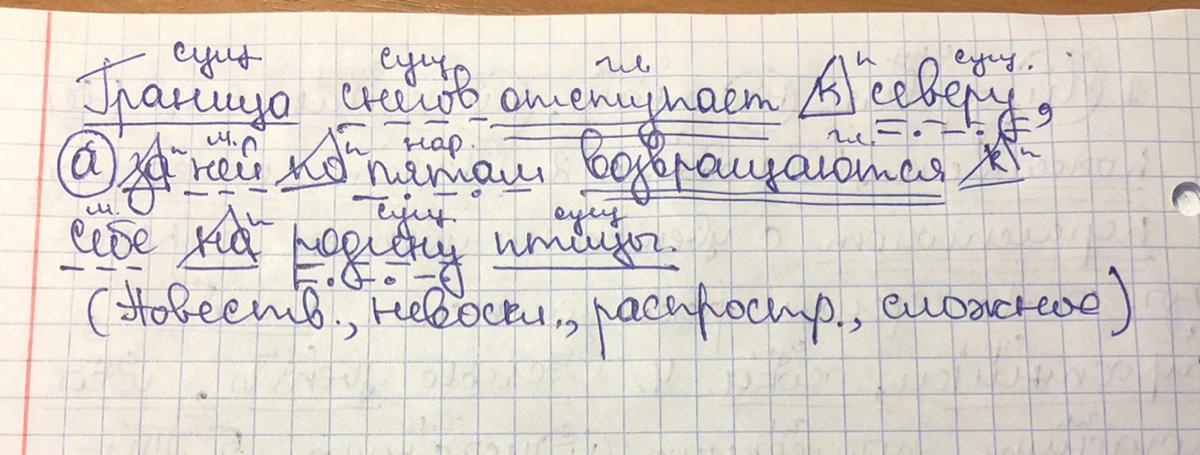 сущ сущ гл п сущ.
Граница снегов отступает к северу,
п м. п нар. гл. п
а за ней по пятам возвращаются к
м. п сущ. сущ
себе на родину птицы.
(Повеств., невоскл., распростр., сложное)